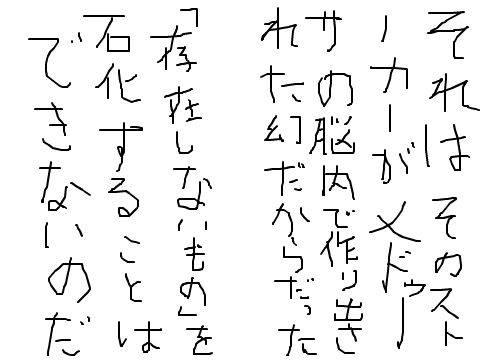 それはそのスト
ーカーがメドゥー
サの脳内で作り出さ
れた幻だからだった
「存在しないもの」を
石化することは
できないのだ